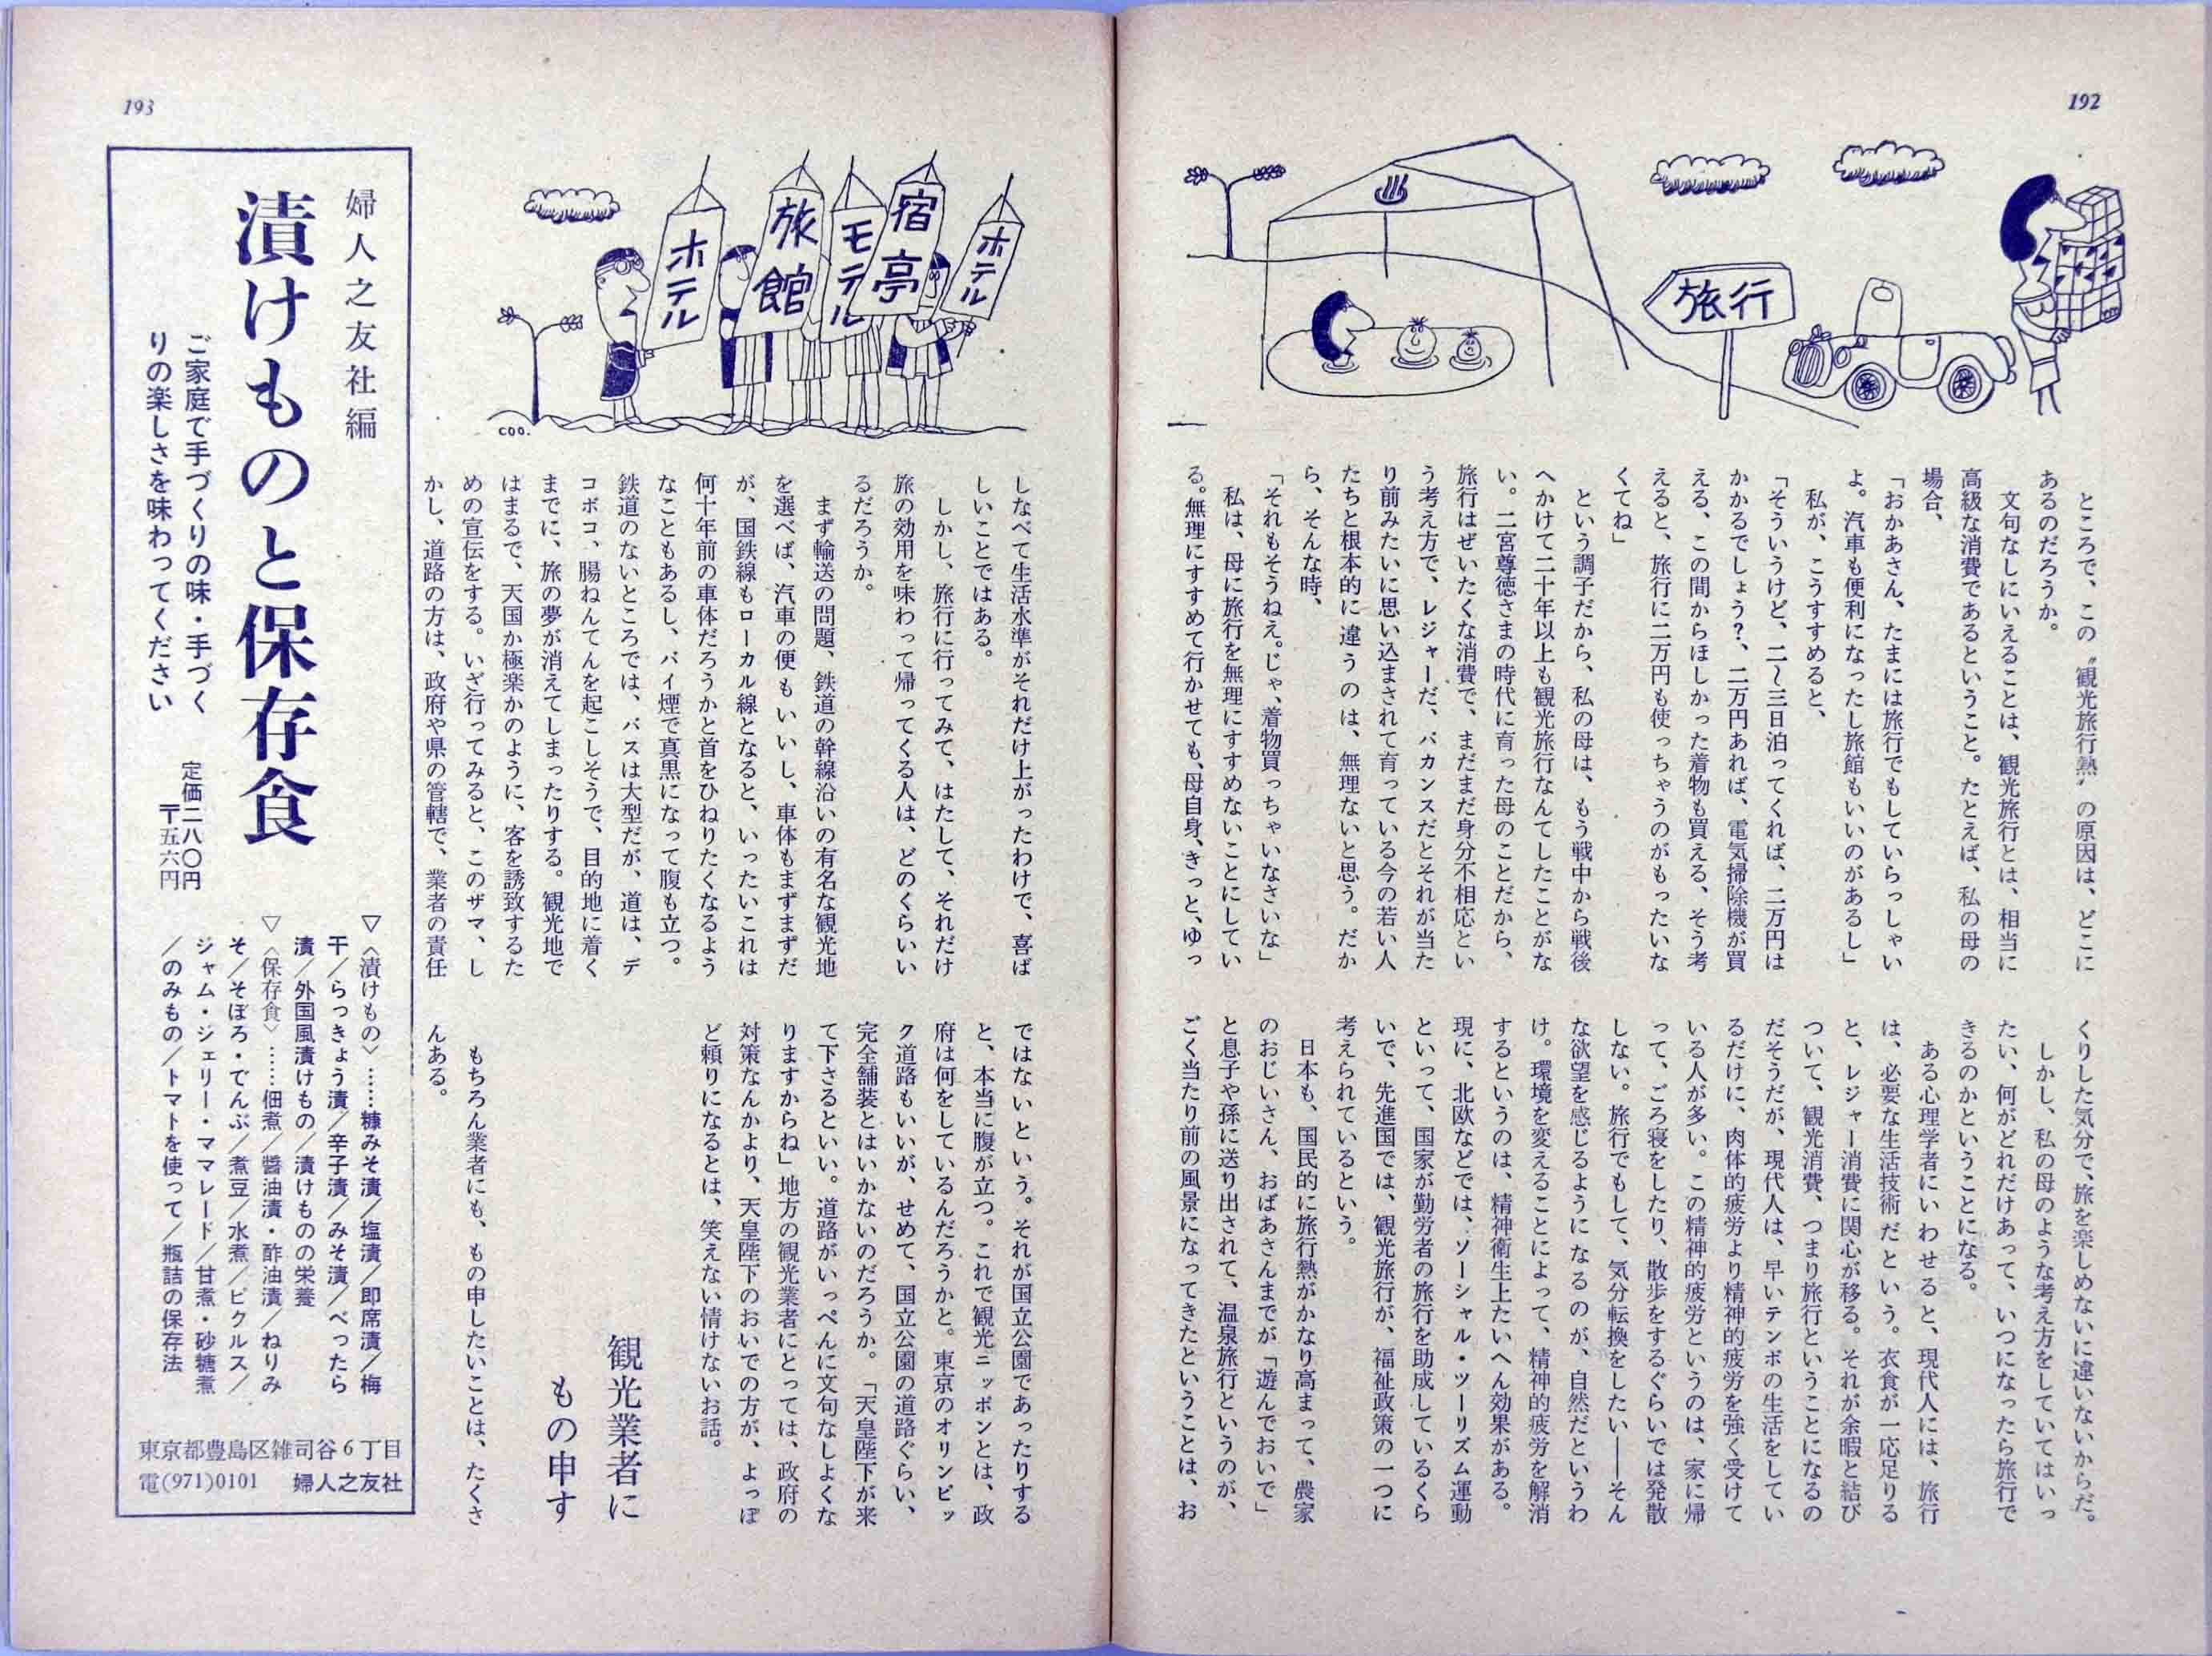 192
旅行
ところで、この〝観光旅行熱〟の原因は、どこに
あるのだろうか。
文句なしにいえることは、観光旅行とは、相当に
高級な消費であるということ。たとえば、私の母の
場合、
「おかあさん、たまには旅行でもしていらっしゃい
よ。汽車も便利になったし旅館もいいのがあるし」
私が、こうすすめると、
「そういうけど、二〜三日泊ってくれば、二万円は
かかるでしょう?、二万円あれば、電気掃除機が買
える、この間からほしかった着物も買える、そう考
えると、旅行に二万円も使っちゃうのがもったいな
くてね」
という調子だから、私の母は、もう戦中から戦後
へかけて二十年以上も観光旅行なんてしたことがな
い。二宮尊徳さまの時代に育った母のことだから、
旅行はぜいたくな消費で、まだまだ身分不相応とい
う考え方で、レジャーだ、バカンスだとそれが当た
り前みたいに思い込まされて育っている今の若い人
たちと根本的に違うのは、無理ないと思う。だか
ら、そんな時、
「それもそうねえ。じゃ、着物買っちゃいなさいな」
私は、母に旅行を無理にすすめないことにしてい
る。無理にすすめて行かせても、母自身、きっと、ゆっ
くりした気分で、旅を楽しめないに違いないからだ。
しかし、私の母のような考え方をしていてはいっ
たい、何がどれだけあって、いつになったら旅行で
きるのかということになる。
ある心理学者にいわせると、現代人には、旅行
は、必要な生活技術だという。衣食が一応足りる
と、レジャー消費に関心が移る。それが余暇と結び
ついて、観光消費、つまり旅行ということになるの
だそうだが、現代人は、早いテンポの生活をしてい
るだけに、肉体的疲労より精神的疲労を強く受けて
いる人が多い。この精神的疲労というのは、家に帰
って、ごろ寝をしたり、散歩をするぐらいでは発散
しない。旅行でもして、気分転換をしたい――そん
な欲望を感じるようになるのが、自然だというわ
け。環境を変えることによって、精神的疲労を解消
するというのは、精神衛生上たいへん効果がある。
現に、北欧などでは、ソーシャル・ツーリズム運動
といって、国家が勤労者の旅行を助成しているくら
いで、先進国では、観光旅行が、福祉政策の一つに
考えられているという。
日本も、国民的に旅行熱がかなり高まって、農家
のおじいさん、おばあさんまでが「遊んでおいで」
と息子や孫に送り出されて、温泉旅行というのが、
ごく当たり前の風景になってきたということは、お
193
ホテル
宿亭
モテル
旅館
ホテル
COO.
しなべて生活水準がそれだけ上がったわけで、喜ば
しいことではある。
しかし、旅行に行ってみて、はたして、それだけ
旅の効用を味わって帰ってくる人は、どのくらいい
るだろうか。
まず輸送の問題、鉄道の幹線沿いの有名な観光地
を選べば、汽車の便もいいし、車体もまずまずだ
が、国鉄線もローカル線となると、いったいこれは
何十年前の車体だろうかと首をひねりたくなるよう
なこともあるし、バイ煙で真黒になって腹も立つ。
鉄道のないところでは、バスは大型だが、道は、デ
コボコ、腸ねんてんを起こしそうで、目的地に着く
までに、旅の夢が消えてしまったりする。観光地で
はまるで、天国か極楽かのように、客を誘致するた
めの宣伝をする。いざ行ってみると、このザマ、し
かし、道路の方は、政府や県の管轄で、業者の責任
ではないという。それが国立公園であったりする
と、本当に腹が立つ。これで観光ニッポンとは、政
府は何をしているんだろうかと。東京のオリンピッ
ク道路もいいが、せめて、国立公園の道路ぐらい、
完全舗装とはいかないのだろうか。「天皇陛下が来
て下さるといい。道路がいっぺんに文句なしよくな
りますからね」地方の観光業者にとっては、政府の
対策なんかより、天皇陛下のおいでの方が、よっぽ
ど頼りになるとは、笑えない情けないお話。
観光業者に
もの申す
もちろん業者にも、もの申したいことは、たくさ
んある。
婦人之友社編
漬けものと保存食
ご家庭で手づくりの味・手づく
りの楽しさを味わってください
定価二八〇円
〒五六円
▽〈漬けもの〉……糠みそ漬/塩漬/即席漬/梅
干/らっきょう漬/辛子漬/みそ漬/べったら
漬/外国風漬けもの/漬けものの栄養
▽〈保存食〉……佃煮/醤油漬・酢油漬/ねりみ
そ/そぼろ・でんぶ/煮豆/水煮/ピクルス/
ジャム・ジェリー・ママレード/甘煮・砂糖煮
/のみもの/トマトを使って/瓶詰の保存法
東京都豊島区雑司谷6丁目
電(971)0101 婦人之友社